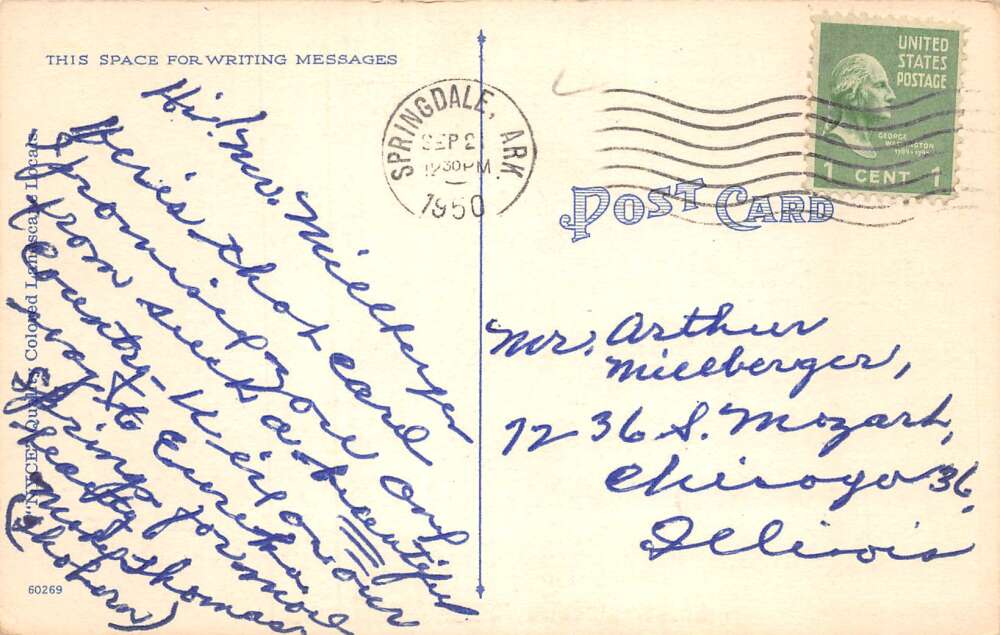 THIS SPACE FOR WRITING MESSAGES
Hi! Mr. Millberger
Here's that card
I promised you
from such a beautiful
Country - We're on our
way to Eureka
Springs for more
Beauty
Thomas
60269
SPRINGDALE, ARK.
SEP 2
12 30 PM
1950
UNITED
STATES
POSTAGE
GEORGE
WASHINGTON
1 CENT 1
POST CARD
Mr. Arthur
Millberger,
7236 S. Mozart,
Chicago 36,
Illinois